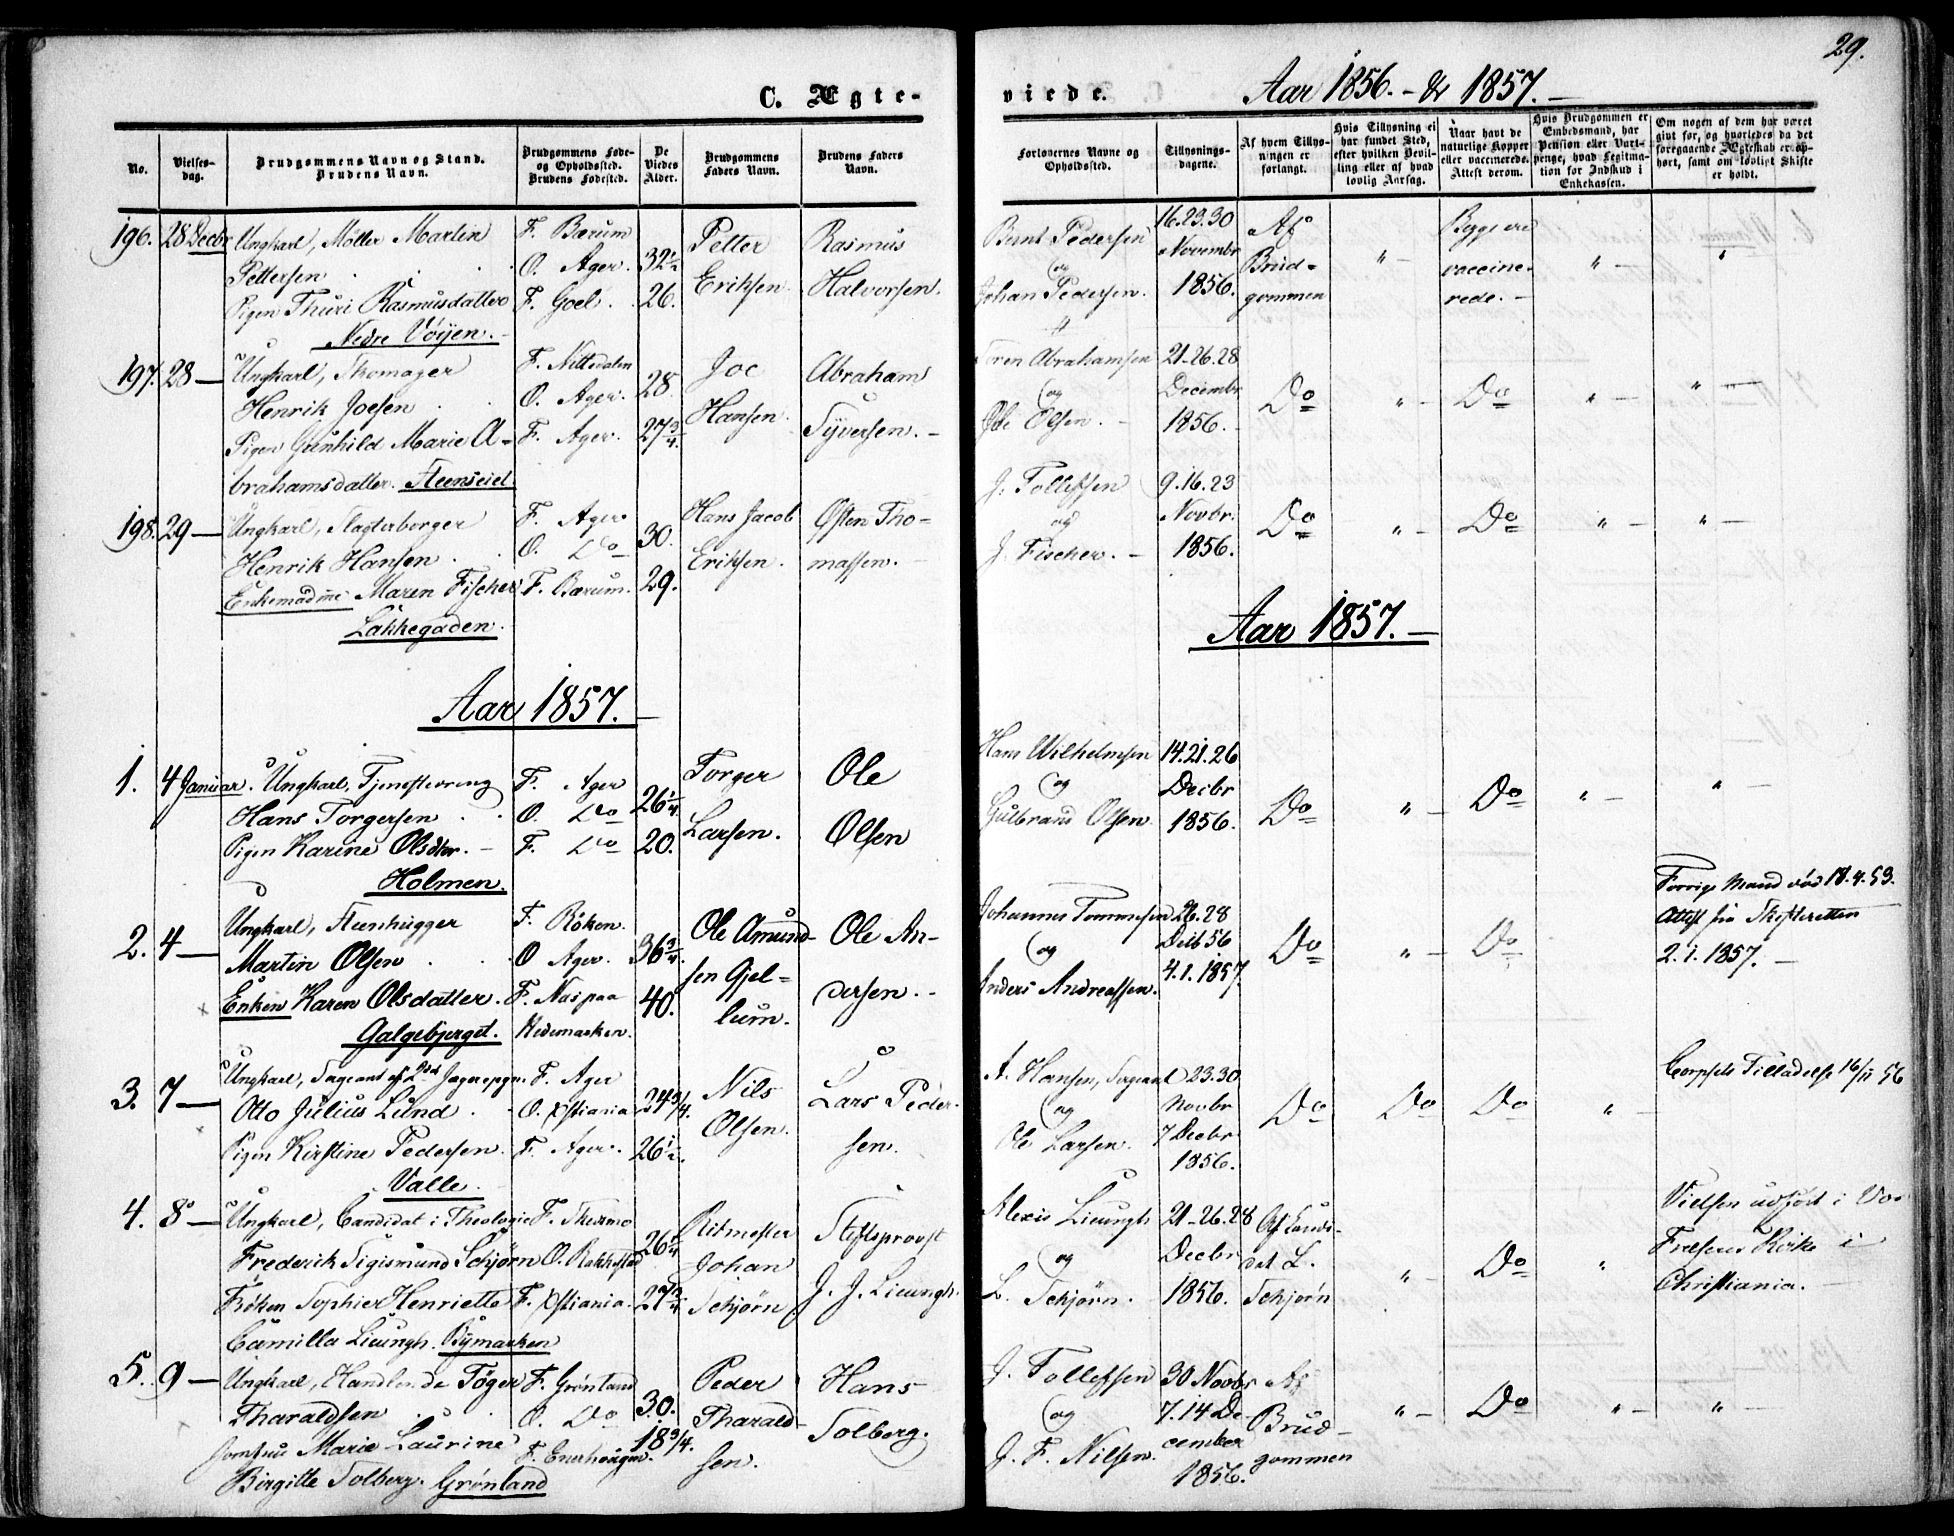 29.
C. Ægte-
viede.
Aar 1856. - & 1857. -
No.
Vielses-
dag.
Brudgommens Navn og Stand.
Brudens Navn.
Brudgommens Føde-
og Opholdssted.
Brudens Fødested.
De
Viedes
Alder.
Brudgommens
Faders Navn.
Brudens Faders
Navn.
Forlovernes Navne og
Opholdssted.
Tillysnings-
dagene.
Af hvem Tillys-
ningen er
forlangt.
Hvis Tillysning ei
har fundet Sted,
efter hvilken Bevil-
ling eller af hvad
lovlig Aarsag.
Naar havt de
naturlige Kopper
eller vaccinerede.
Attest derom.
Hvis Brudgommen er
Embedsmand, har
Pension eller Vart-
penge, hvad Legitima-
tion for Indskud i
Enkekassen.
Om nogen af dem har været
givt før, og hvorledes da det
foregaaende Ægteskab er op-
hørt, samt om lovligt Skifte
er holdt.
196. 28 Decbr Ungkarl, Møller Martin F. Bærum Petter Rasmus
Pettersen O. Ager. 32 1/2
Pigen Thuri Rasmusdatter F. Goel. 26. Eriksen. Halvorsen.
Nedre Vöyen.
Bernt Pedersen 16.23.30 Af Begge ere
og Novembr Brud- " vaccine- " "
Johan Pedersen. 1856. gommen rede. -
197. 28 — Ungkarl, F. Nittedalen Joe Abraham
Henrik Joesen O. Ager. 28.
Pigen Gunhild Marie A- F. Ager. 27 3/4. Hansen. Syversen. -
brahamsdatter. Steenseiet
Abrahamsen 21-26.28
og Decembr Do " Do " "
Ole Olsen. 1856. -
198. 29 — Ungkarl, F. Ager Hans Jacob Østen Tho-
Henrik Hansen O. Do 30.
Enkemadme Maren Fischer F. Bærum. 29. Eriksen. massen. -
Lakkegaden.
J. Tollefsen 9.16.23
og Novbr. Do " Do " "
J. Fischer. - 1856.
Aar 1857.
Aar 1857. -
1. 4 Januar. Ungkarl, Tjenstdreng F. Ager Torger Ole
Hans Torgersen O. Do 26 1/4
Pigen Karine Olsdtr. - F. Do 20. Larsen. Olsen
Holmen.
Hans Wilhelmsen 14.21.26
og Decbr
Gulbrand Olsen. 1856. Do " Do " "
2. 4 — Ungkarl, Steenhugger F. Röken. Ole Amund- Ole An-
Martin Olsen O Ager. 36 3/4. sen Gjel-
Enken Karen Olsdatter. F. Næs paa 40. lum. dersen. -
Galgebjerget. Hedemarken.
Johannes Tommesen 26.28
og Decb 56 Do " Do
Anders Andreassen. 4.1.1857.
Forrige Mand död 18.4.53.
Attest fra Skifteretten
2.1.1857. -
3. 7 — Ungkarl, Sergeant af 2det Jægerpgn. F. Ager Nils Lars Peder-
Otto Julius Lund O. Xstiania 24 3/4. Olsen. sen.
Pigen Kirstine Pedersen. F. Ager. 26 1/2.
Valle.
A. Hansen, Sergeant 23.30
og Novbr Do Do Do "
Ole Larsen. 7 Decbr
1856.
Corpsets Tilladelse 16/11 56
4. 8 — Ungkarl, Candidat i Theologie F. Ritmester Stiftsprovst
Frederik Sigismund Schjørn O. Rakkestad 26 1/4 Johan
Fröken Sophie Henriette F. Xstiania. 27 3/4 Schjørn. J. J. Lieungh.
Camilla Lieungh. Bymarken
Alexis Lieungh 21-26.28 Af
og Decbr L.
L. Schjørn. 1856. Schjørn " Do "
Vielsen udført i Vor
Frelsers Kirke i
Christiania. -
5. 9 — Ungkarl, Handlende Töger F. Grønland Peder Hans
Tharaldsen O. Do 30. Tharald- Solberg.
Jomfru Marie Laurine F. Enerhougen. 18 3/4. sen.
Birgitte Solberg. Grønland
J. Tollefsen 30 Novbr Af
og 7.14 De- Brud- " Do " "
J. F. Nilsen. cember gommen
1856.